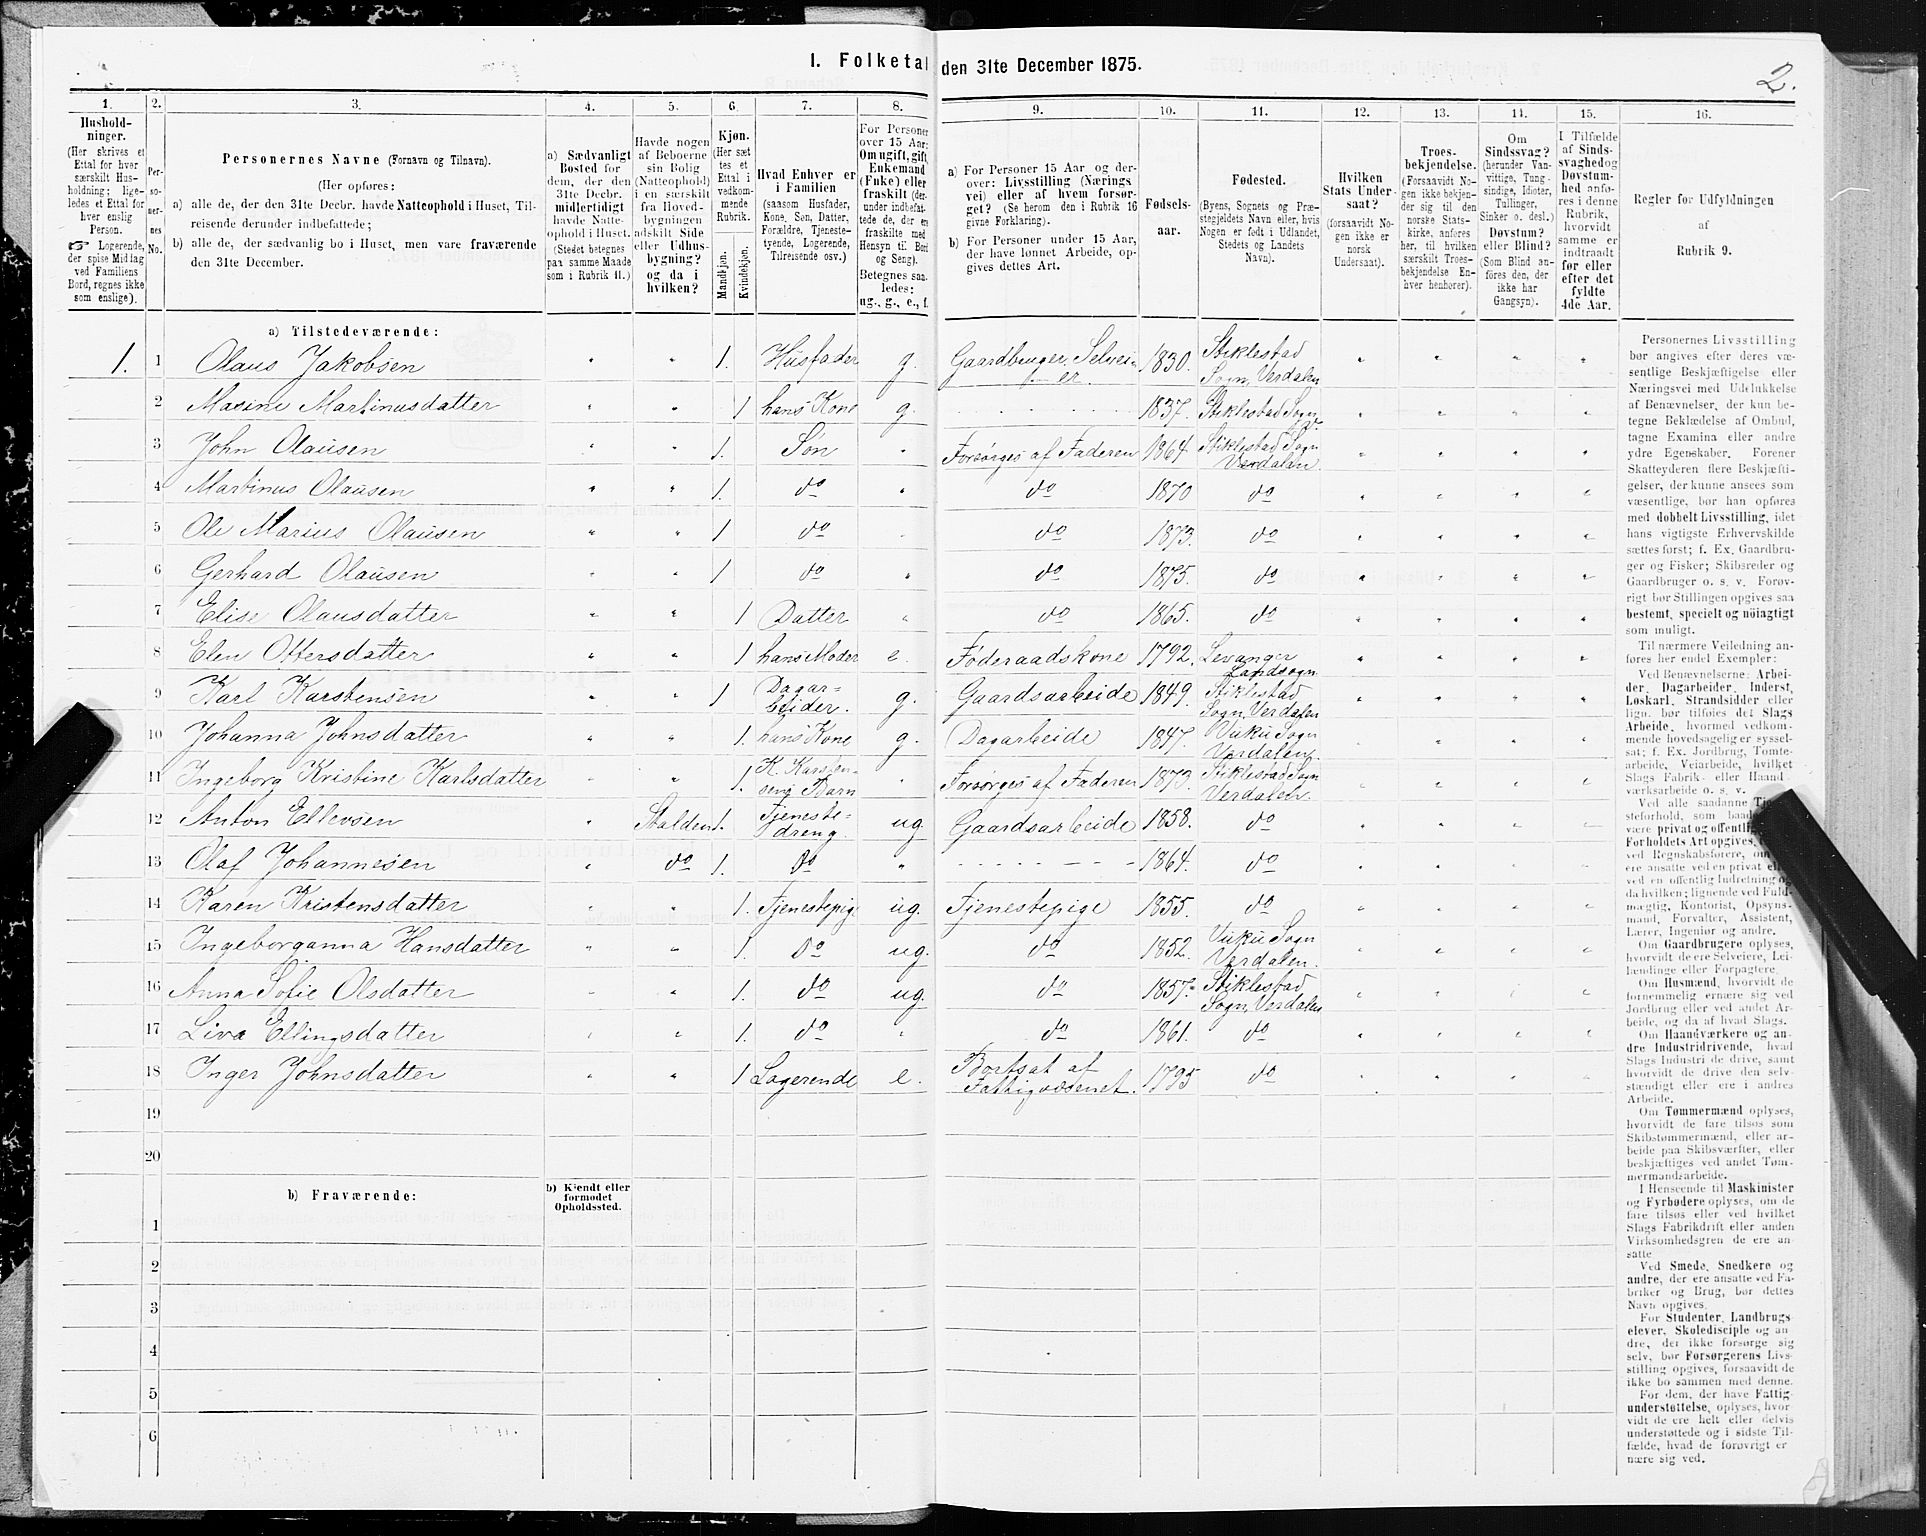 1. Folketal den 31te December 1875.
2.
1. 2. 3. 4. 5. 6. 7. 8. 9. 10. 11. 12. 13. 14. 15. 16.
Hushold-
ninger.
(Her skrives et
Ettal for hver
særskilt Hus-
holdning; lige-
ledes et Ettal for
hver enslig
Person.
☞ Logerende,
der spise Middag
ved Familiens
Bord, regnes ikke
som enslige).
Per-
so-
ner-
nes
No.
Personernes Navne (Fornavn og Tilnavn).
(Her opføres:
a) alle de, der den 31te Decbr. havde Natteophold i Huset, Til-
reisende derunder indbefattede;
b) alle de, der sædvanlig bo i Huset, men vare fraværende
den 31te December.
a) Sædvanligt
Bosted for
dem, der den
31te Decbr.
midlertidigt
havde Natte-
ophold i Huset.
(Stedet betegnes
paa samme Maade
som i Rubrik 11.)
Havde nogen
af Beboerne
sin Bolig
(Natteophold)
i en særskilt
fra Hoved-
bygningen
adskilt Side
eller Udhus-
bygning?
og da i
hvilken?
Kjøn.
(Her sæt
tes et
Ettal i
vedkom-
mende
Rubrik.
Mandkjøn.
Kvindekjøn.
Hvad Enhver er
i Familien
(saasom Husfader,
Kone, Søn, Datter,
Forældre, Tjeneste-
tyende, Logerende,
Tilreisende osv.)
For Personer
over 15 Aar:
Om ugift, gift,
Enkemand
(Enke) eller
fraskilt (der-
under indbefat-
tede de, der ere
fraskilte med
Hensyn til Bord
og Seng).
Betegnes saa-
ledes:
ug., g., e., f.
a) For Personer 15 Aar og der-
over: Livsstilling (Nærings
vei) eller af hvem forsør-
get? (Se herom den i Rubrik 16
givne Forklaring).
b) For Personer under 15 Aar,
der have lønnet Arbeide, op-
gives dettes Art.
Fødsels-
aar.
Fødested.
(Byens, Sognets og Præ-
stegjeldets Navn eller, hvis
Nogen er født i Udlandet,
Stedets og Landets
Navn).
Hvilken
Stats Under-
saat?
(forsaavidt No-
gen ikke er
norsk
Undersaat).
Troes-
bekjendelse.
(Forsaavidt No-
gen ikke bekjen-
der sig til den
norske Stats-
kirke, anføres
her, til hvilken
særskilt Troes-
bekjendelse En-
hver henhører).
Om
Sindssvag?
(herunder Van-
vittige, Tung-
sindige, Idioter,
Tullinger,
Sinker o. desl.)
Døvstum?
eller Blind?
(Som Blind an-
føres den, der
ikke har
Gangsyn).
I Tilfælde
af Sinds-
svaghed og
Døvstum-
hed anfø-
res i denne
Rubrik,
hvorvidt
samme er
indtraadt
før eller
efter det
fyldte
4de Aar.
Regler for Udfyldningen
af
Rubrik 9.
a) Tilstedeværende:
1. 1 Olaus Jakobsen " " 1. Husfader g. Gaardbruger, Selvei-er 1830. Stiklestad Sogn, Verdalen " " " "
2 Masine Martinusdatter " " 1 hans Kone g. 1837. Stiklestad Sogn V. " " " "
3 John Olausen " " 1. Søn " Forsørges af Faderen 1864 Stiklestad Sogn Verdalen " " " "
4 Martinus Olausen " " 1. do " do 1870 do " " " "
5 Ole Marius Olausen " " 1 do " do 1873. do " " " "
6 Gerhard Olausen " " 1 do " do 1875. do " " " "
7 Elise Olausdatter " " 1 Datter " do 1865. do " " " "
8 Elen Ottersdatter " " 1 hans Moder e. Føderaadskone 1792. Levanger Landsogn " " " "
9 Karl Karstensen " " 1 Dagar-beider. g. Gaardsarbeide 1849. Stiklestad Sogn, Verdalen " " " "
10 Johanna Johnsdatter " " 1. hans Kone g. Dagarbeide 1847. Vuku Sogn Verdalen. " " " "
11 Ingeborg Kristine Karlsdatter " " 1. K. Karsten-sens Barn " Forsørges af Faderen 1873. Stiklestad Sogn Verdalen. " " " "
12 Anton Ellevsen " Stalden 1. Tjeneste-dreng. ug. Gaardsarbeide 1858. do " " " "
13 Olaf Johannesen " do 1. do " 1864. do " " " "
14 Karen Kristensdatter " " 1. Tjenestepige ug. Tjenestepige 1855. do " " " "
15 Ingeborganna Hansdatter " " 1. do ug. do 1852. Vuku Sogn Verdalen. " " " "
16 Anna Sofie Olsdatter " " 1. do ug. do 1857. Stiklestad Sogn, Verdalen " " " "
17 Liva Ellingsdatter " " 1. do " do 1861. do " " " "
18 Inger Johnsdatter " " 1 Logerende e. Bortsat af Fattigvæsenet. 1795 do " " " "
19
20
b) Fraværende:
b) Kjendt eller
formodet
Opholdssted.
1
2
3
4
5
6
Personernes Livsstilling
bør angives efter deres væ-
sentlige Beskjæftigelse eller
Næringsvei med Udelukkelse
af Benævnelser, der kun be-
tegne Beklædelse af Ombud,
tagne Examina eller andre
ydre Egenskaber. Forener
Skatteyderen flere Beskjæfti-
gelser, der kunne ansees som
væsentlige, bør han opføres
med dobbelt Livsstilling, idet
hans vigtigste Erhvervskilde
sættes først; f. Ex. Gaardbru-
ger og Fisker; Skibsreder og
Gaardbruger o. s. v. Forøv-
rigt bør Stillingen opgives saa
bestemt, specielt og nöiagtigt
som muligt.
Til nærmere Veiledning an-
føres her endel Exempler:
Ved Benævnelserne: Arbei-
der, Dagarbeider, Inderst,
Løskarl, Strandsidder eller
lign. bør tilføies det Slags
Arbeide, hvormed vedkom-
mende hovedsagelig er syssel-
sat; f. Ex. Jordbrug, Tomte-
arbeide, Veiarbeide, hvilket
Slags Fabrik- eller Haand-
værksarbeide o. s. v.
Ved alle saadanne
steforhold, som baade
være privat og offentlig
Forholdets Art opgives,
ved Regnskabsførere, om
ere ansatte ved en privat
ved en offentlig Indretning og
da hvilken; lignende ved Fuld-
mægtig, Kontorist, Opsyns-
mand, Forvalter, Assistent,
Lærer, Ingeniør og andre.
Om Gaardbrugere oplyses,
hvorvidt de ere Selveiere, Lei-
lændinge eller Forpagtere.
Om Husmænd, hvorvidt de
fornemmelig ernære sig ved
Jordbrug eller ved andet Ar-
beide, og da af hvad Slags.
Om Haandværkere og an-
dre Industridrivende, hvad
Slags Industri de drive, samt
hvorvidt de drive den selv-
stændigt eller ere i andres
Arbeide.
Om Tømmermænd oplyses,
hvorvidt de fare tilsøs som
Skibstømmermænd, eller ar-
beide paa Skibsværfter, eller
beskjæftiges ved andet Tøm-
mermandsarbeide.
I Henseende til Maskinister
og Fyrbødere oplyses, om de
fare tilsøs eller ved hvilket
Slags Fabrikdrift eller anden
Virksomhedsgren de ere an-
satte.
Ved Smede, Snedkere og
andre, der ere ansatte ved Fa-
briker og Brug, bør dettes
Navn opgives.
For Studenter, Landbrugs-
elever, Skoledisciple og an-
dre, der ikke forsørge sig
selv, bør Forsørgerens Livs-
stilling opgives, forsaavidt de
ikke bo sammen med denne.
For dem, der have Fattig-
understøttelse, oplyses, hvor-
vidt de ere helt eller delvis
understøttede og i sidste Til-
fælde, hvad de forøvrigt er
nære sig ved.